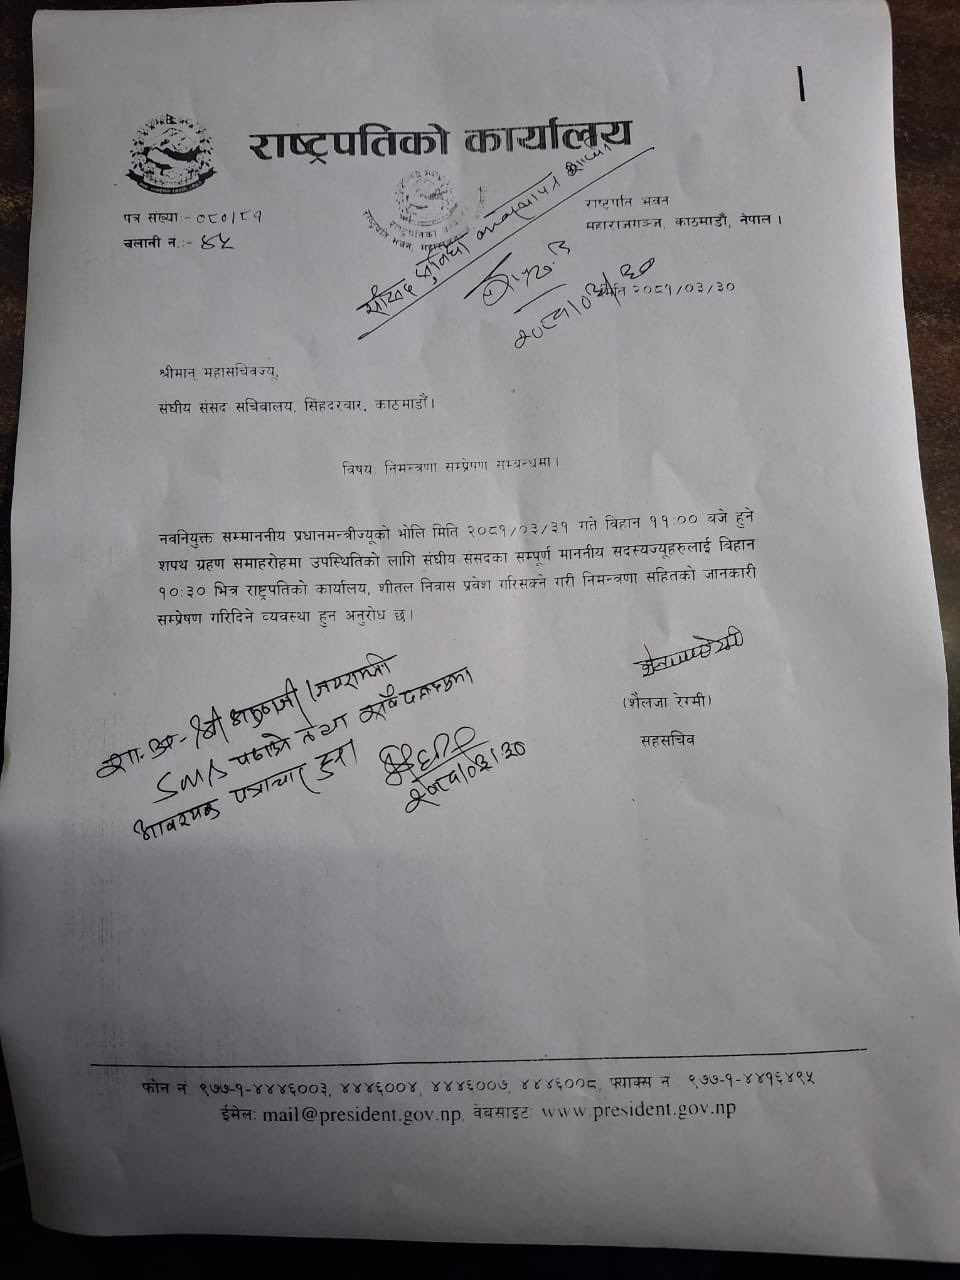 राष्ट्रपतिको कार्यालय
राष्ट्रपति भवन
महाराजगञ्ज, काठमाडौं, नेपाल ।
पत्र संख्या:- ०८०/८१
चलानी नं.:- ४५
मिति २०८१/०३/३०
२०८१/०३/३०
श्रीमान् महासचिवज्यू,
संघीय संसद सचिवालय, सिंहदरबार, काठमाडौं ।
विषय: निमन्त्रणा सम्प्रेषण सम्बन्धमा ।
नवनियुक्त सम्माननीय प्रधानमन्त्रीज्यूको भोलि मिति २०८१/०३/३१ गते विहान ११:०० बजे हुने
शपथ ग्रहण समाहरोहमा उपस्थितिको लागि संघीय संसदका सम्पूर्ण माननीय सदस्यज्यूहरुलाई विहान
१०:३० भित्र राष्ट्रपतिको कार्यालय, शीतल निवास प्रवेश गरिसक्ने गरी निमन्त्रणा सहितको जानकारी
सम्प्रेषण गरिदिने व्यवस्था हुन अनुरोध छ ।
(शैलजा रेग्मी)
सहसचिव
SMS पठाउने तथा
आवश्यक पत्राचार
२०८१/०३/३०
फोन नं ९७७-१-४४४६००३, ४४४६००४, ४४४६००७, ४४४६००८, फ्याक्स न ९७७-१-४४१६४९५
ईमेल: mail@president.gov.np, वेबसाइट: www.president.gov.np